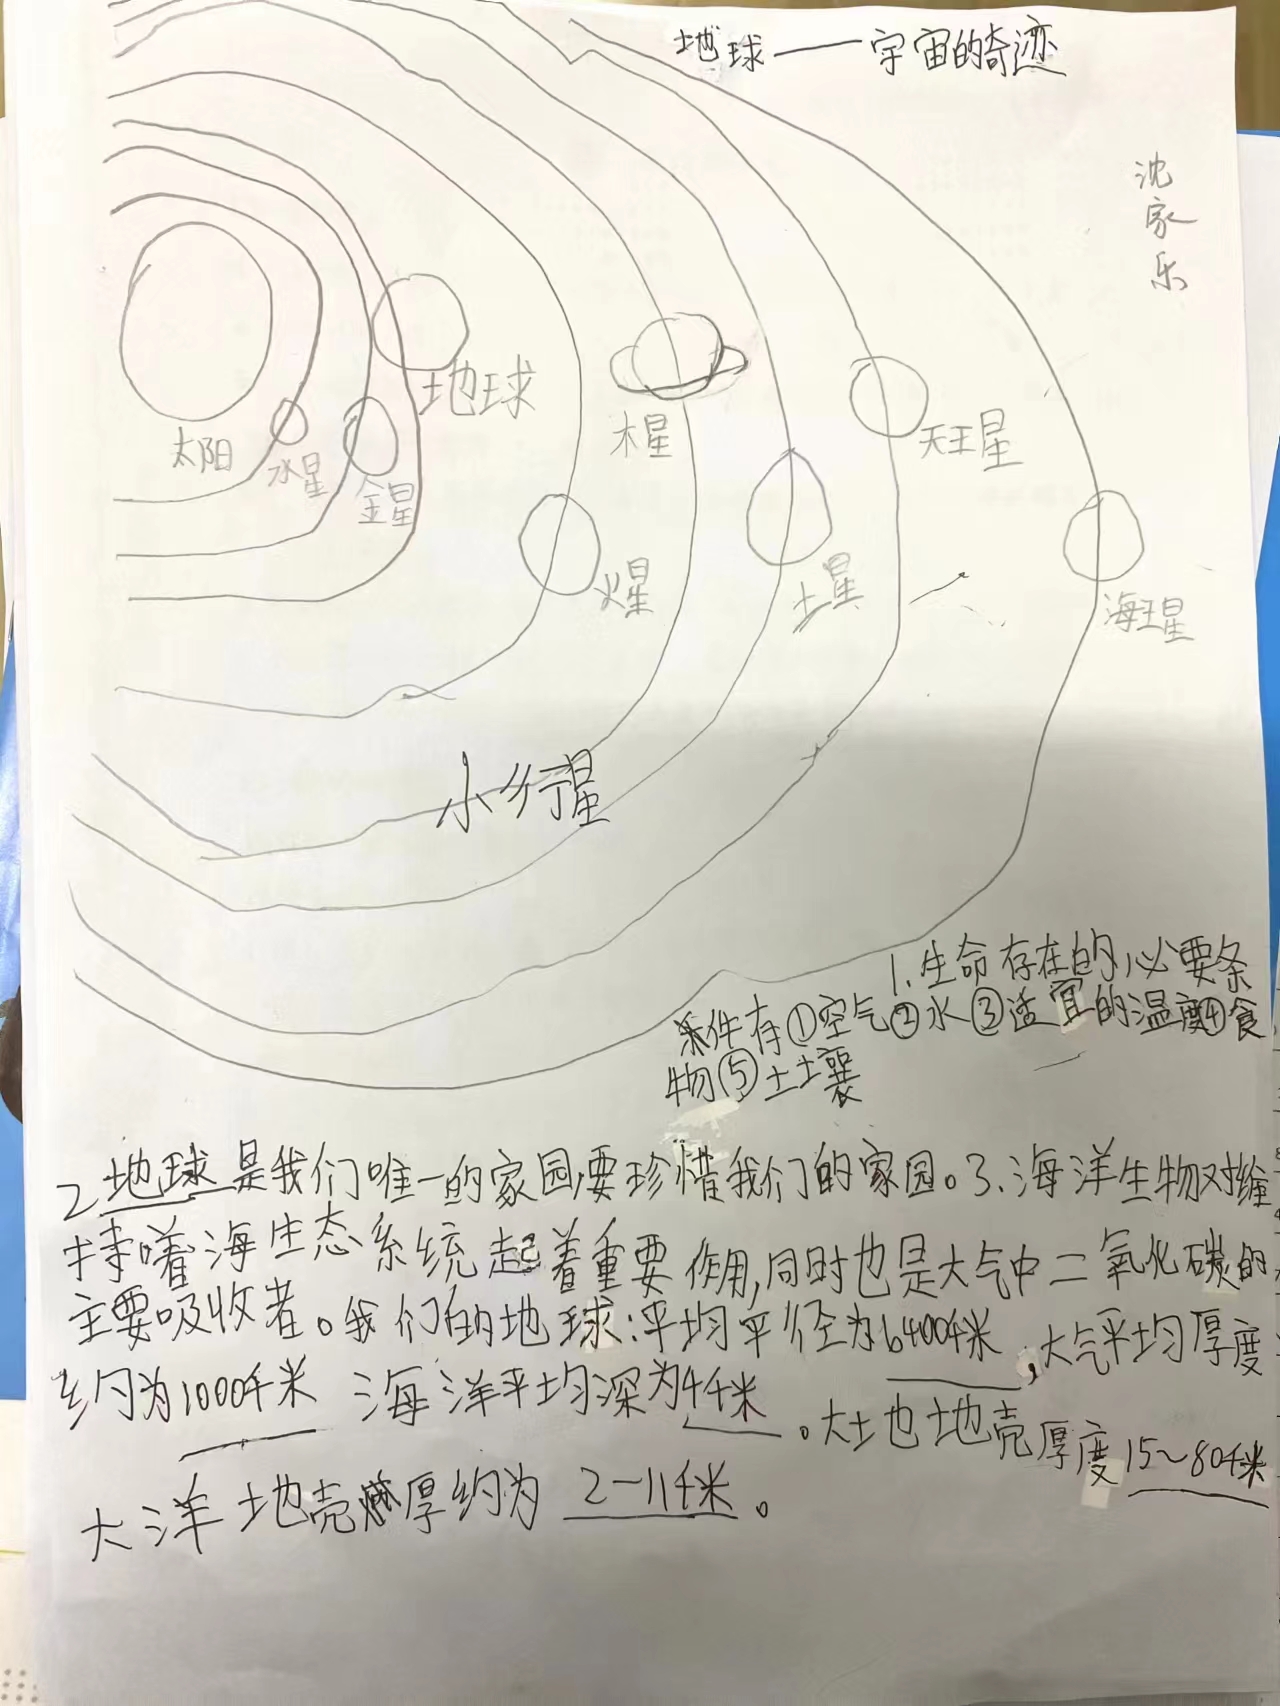 地球——宇宙的奇迹
沈家乐
太阳
水星
金星
地球
火星
木星
土星
天王星
海王星
小行星
1.生命存在的必要条
件有①空气②水③适宜的温度④食
物⑤土壤
2地球是我们唯一的家园,要珍惜我们的家园。3.海洋生物对维
持着海生态系统起着重要作用,同时也是大气中二氧化碳的
主要吸收者。我们的地球:平均半径为6400千米,大气平均厚度
约为1000千米 海洋平均深为4千米。大土也地壳厚度15~80千米
大洋地壳厚约为2—11千米。